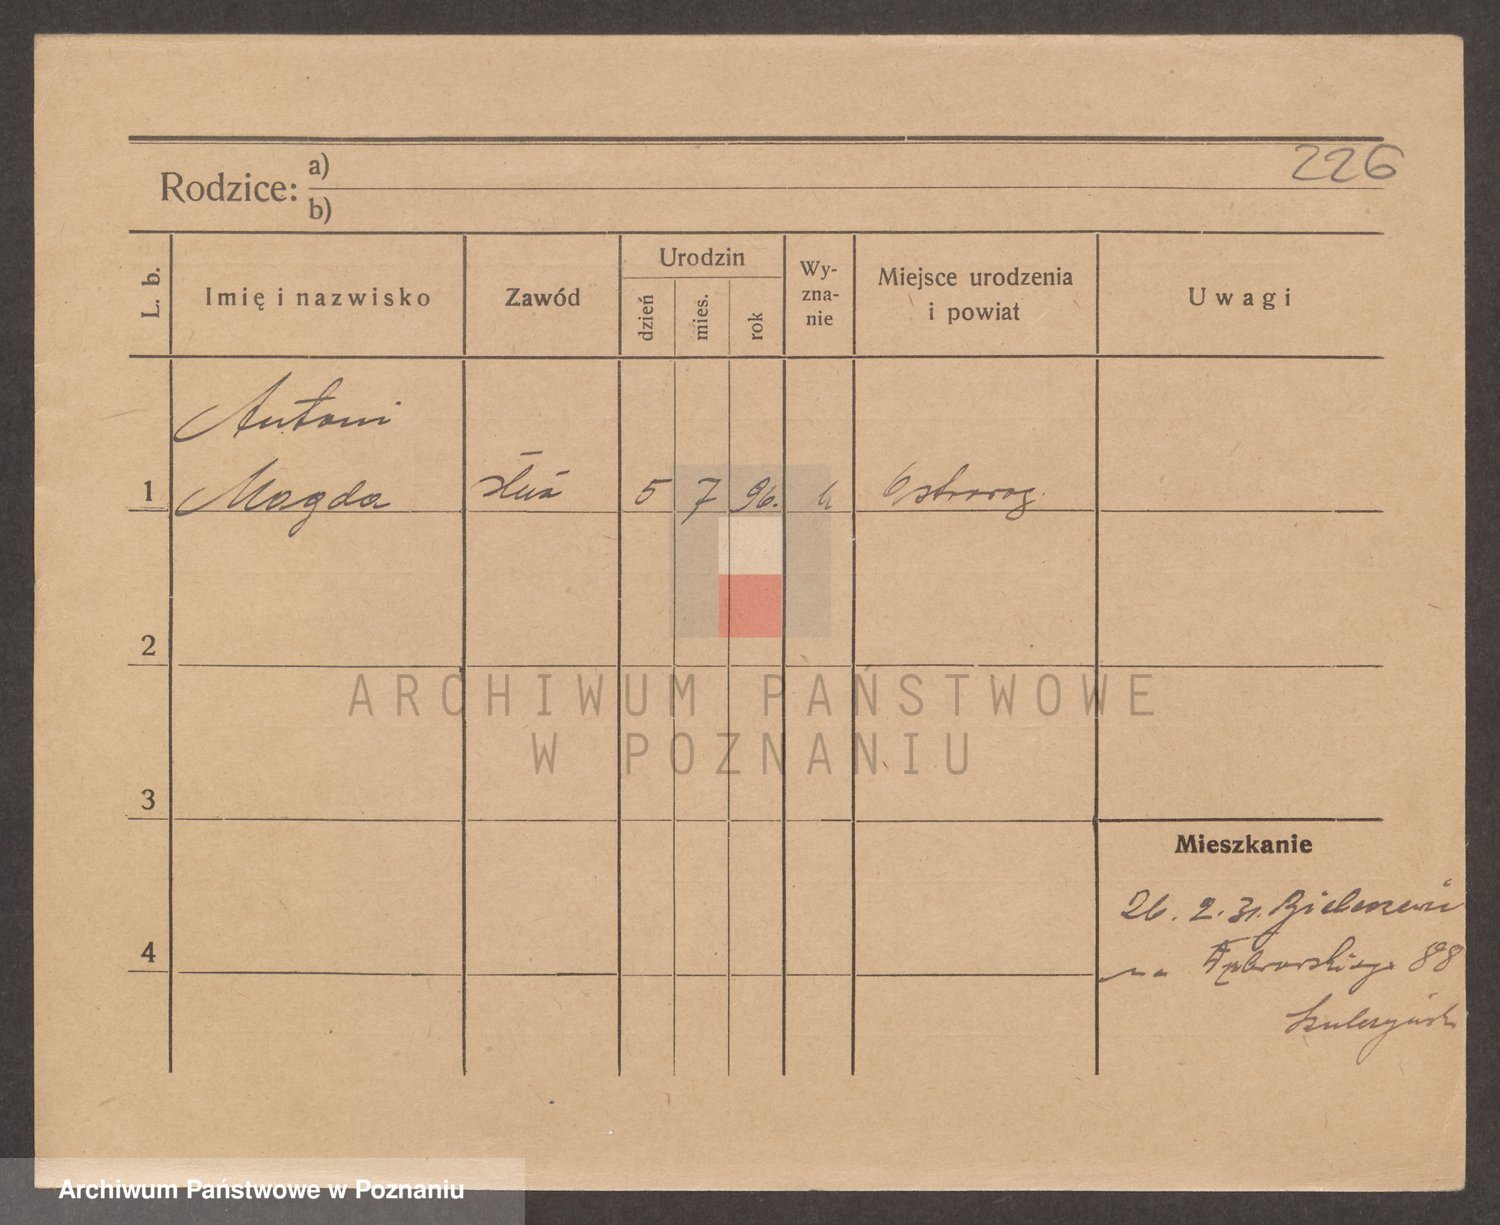 226
Rodzice: a)
b)
L. b.
Imię i nazwisko
Zawód
Urodzin
dzień
mies.
rok
Wy-
zna-
nie
Miejsce urodzenia
i powiat
Uwagi
Antoni
1 Magda 5 7 96. Ostroróg.
2
ARCHIWUM PAŃSTWOWE
W POZNANIU
3
Mieszkanie
26. 2. 31.
4
na Dąbrowskiego 88
Archiwum Państwowe w Poznaniu